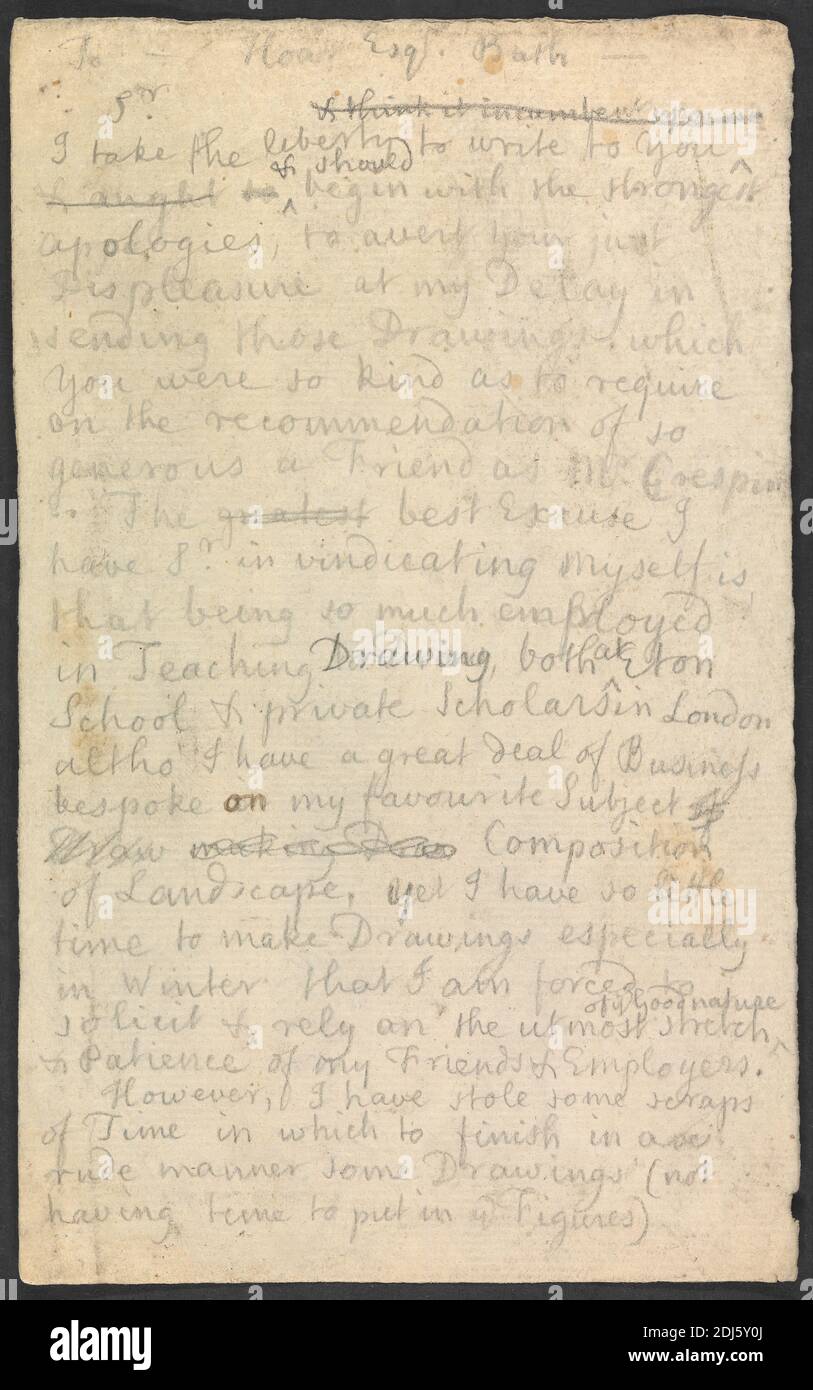 To — Hoa Esqr. Bath —
Sr
& think it incumbent upon me
I take the liberty to write to You
& should
& aught to begin with the strongest
apologies, to avert your just
Displeasure at my Delay in
sending those Drawings which
You were so kind as to require
on the recommendation of so
generous a Friend as Mr. Crespin
The greatest best Excuse I
have Sr. in vindicating Myself is
that being so much employed
in Teaching Drawing, both at Eton
School & private Scholars in London
altho' I have a great deal of Business
bespoke on my favourite Subject of
Draw making Draw Composition
of Landscape, yet I have so little
time to make Drawings especially
in Winter that I am forced to
of ye Good nature
solicit & rely on the utmost stretch
& Patience of my Friends & Employers.
However, I have stole some scraps
of Time in which to finish in a
rude manner some Drawings (not
having time to put in ye Figures)
alamy
alamy
Image ID: 2DJ5Y0J
www.alamy.com